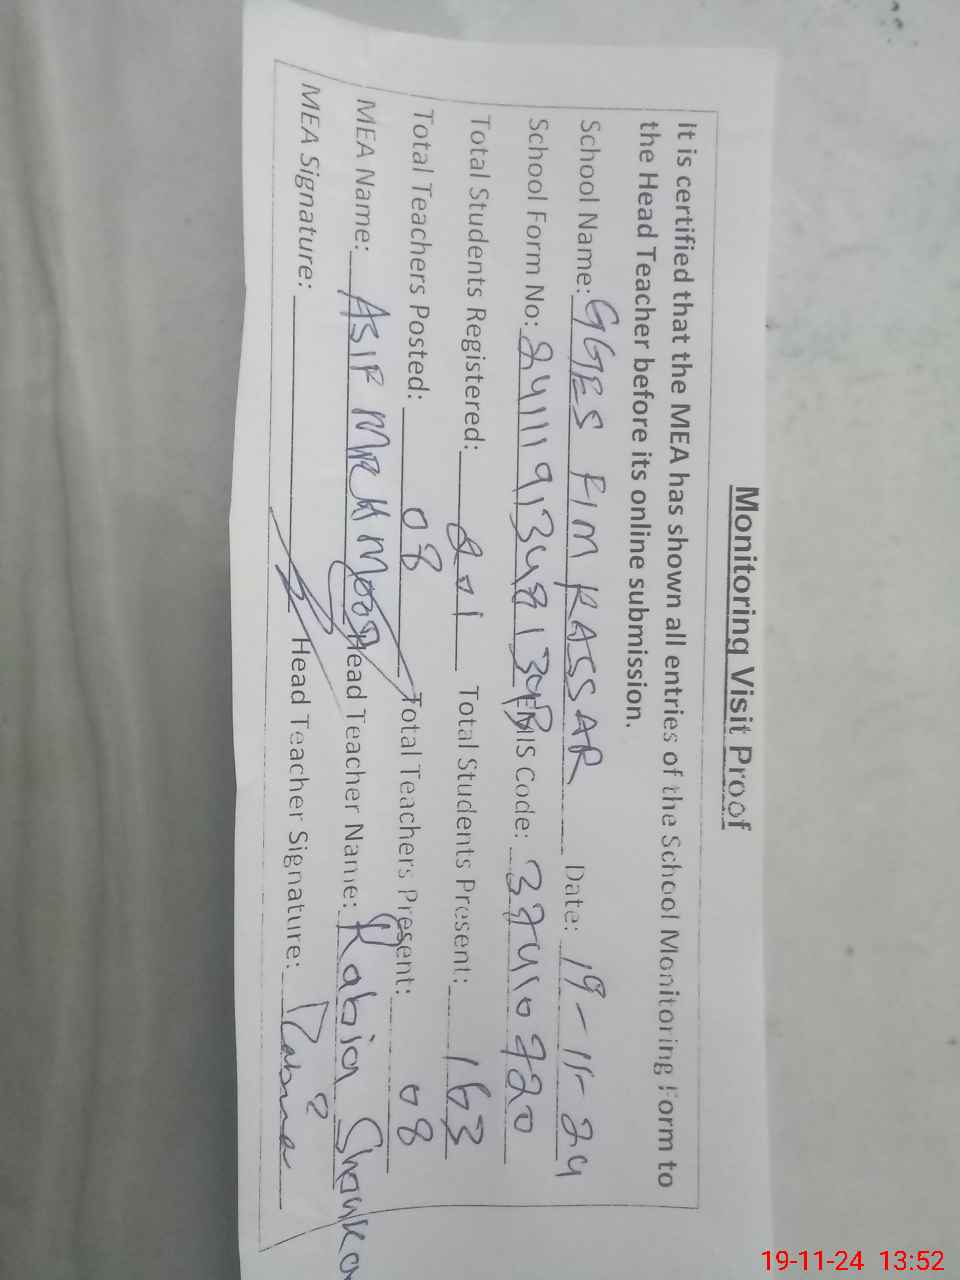 Monitoring Visit Proof
It is certified that the MEA has shown all entries of the School Monitoring Form to
the Head Teacher before its online submission.
School Name: GGES KIM KASSAR Date: 19-11-24
School Form No: EMIS Code: 37410720
Total Students Registered: 201 Total Students Present: 163
Total Teachers Posted: 08 Total Teachers Present: 08
MEA Name: ASIF MEHMOOD Head Teacher Name: Rabia
MEA Signature: Head Teacher Signature: Rabia
19-11-24 13:52